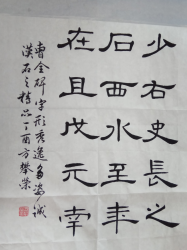 少右史長之
石西水至年
在且戊元南
曹全碑字形秀逸多姿誠
漢石之精品丁酉方攀榮